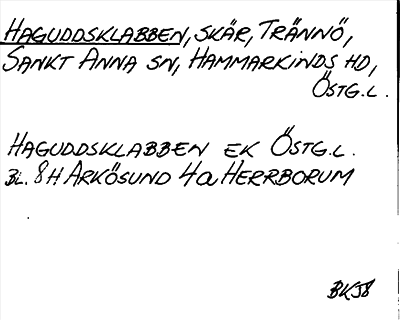 HAGUDDSKLABBEN, SKÄR, TRÄNNÖ,
SANKT ANNA SN, HAMMARKINDS HD,
ÖSTG.L.
HAGUDDSKLABBEN EK ÖSTG.L.
BL. 8H ARKÖSUND 4a HERRBORUM